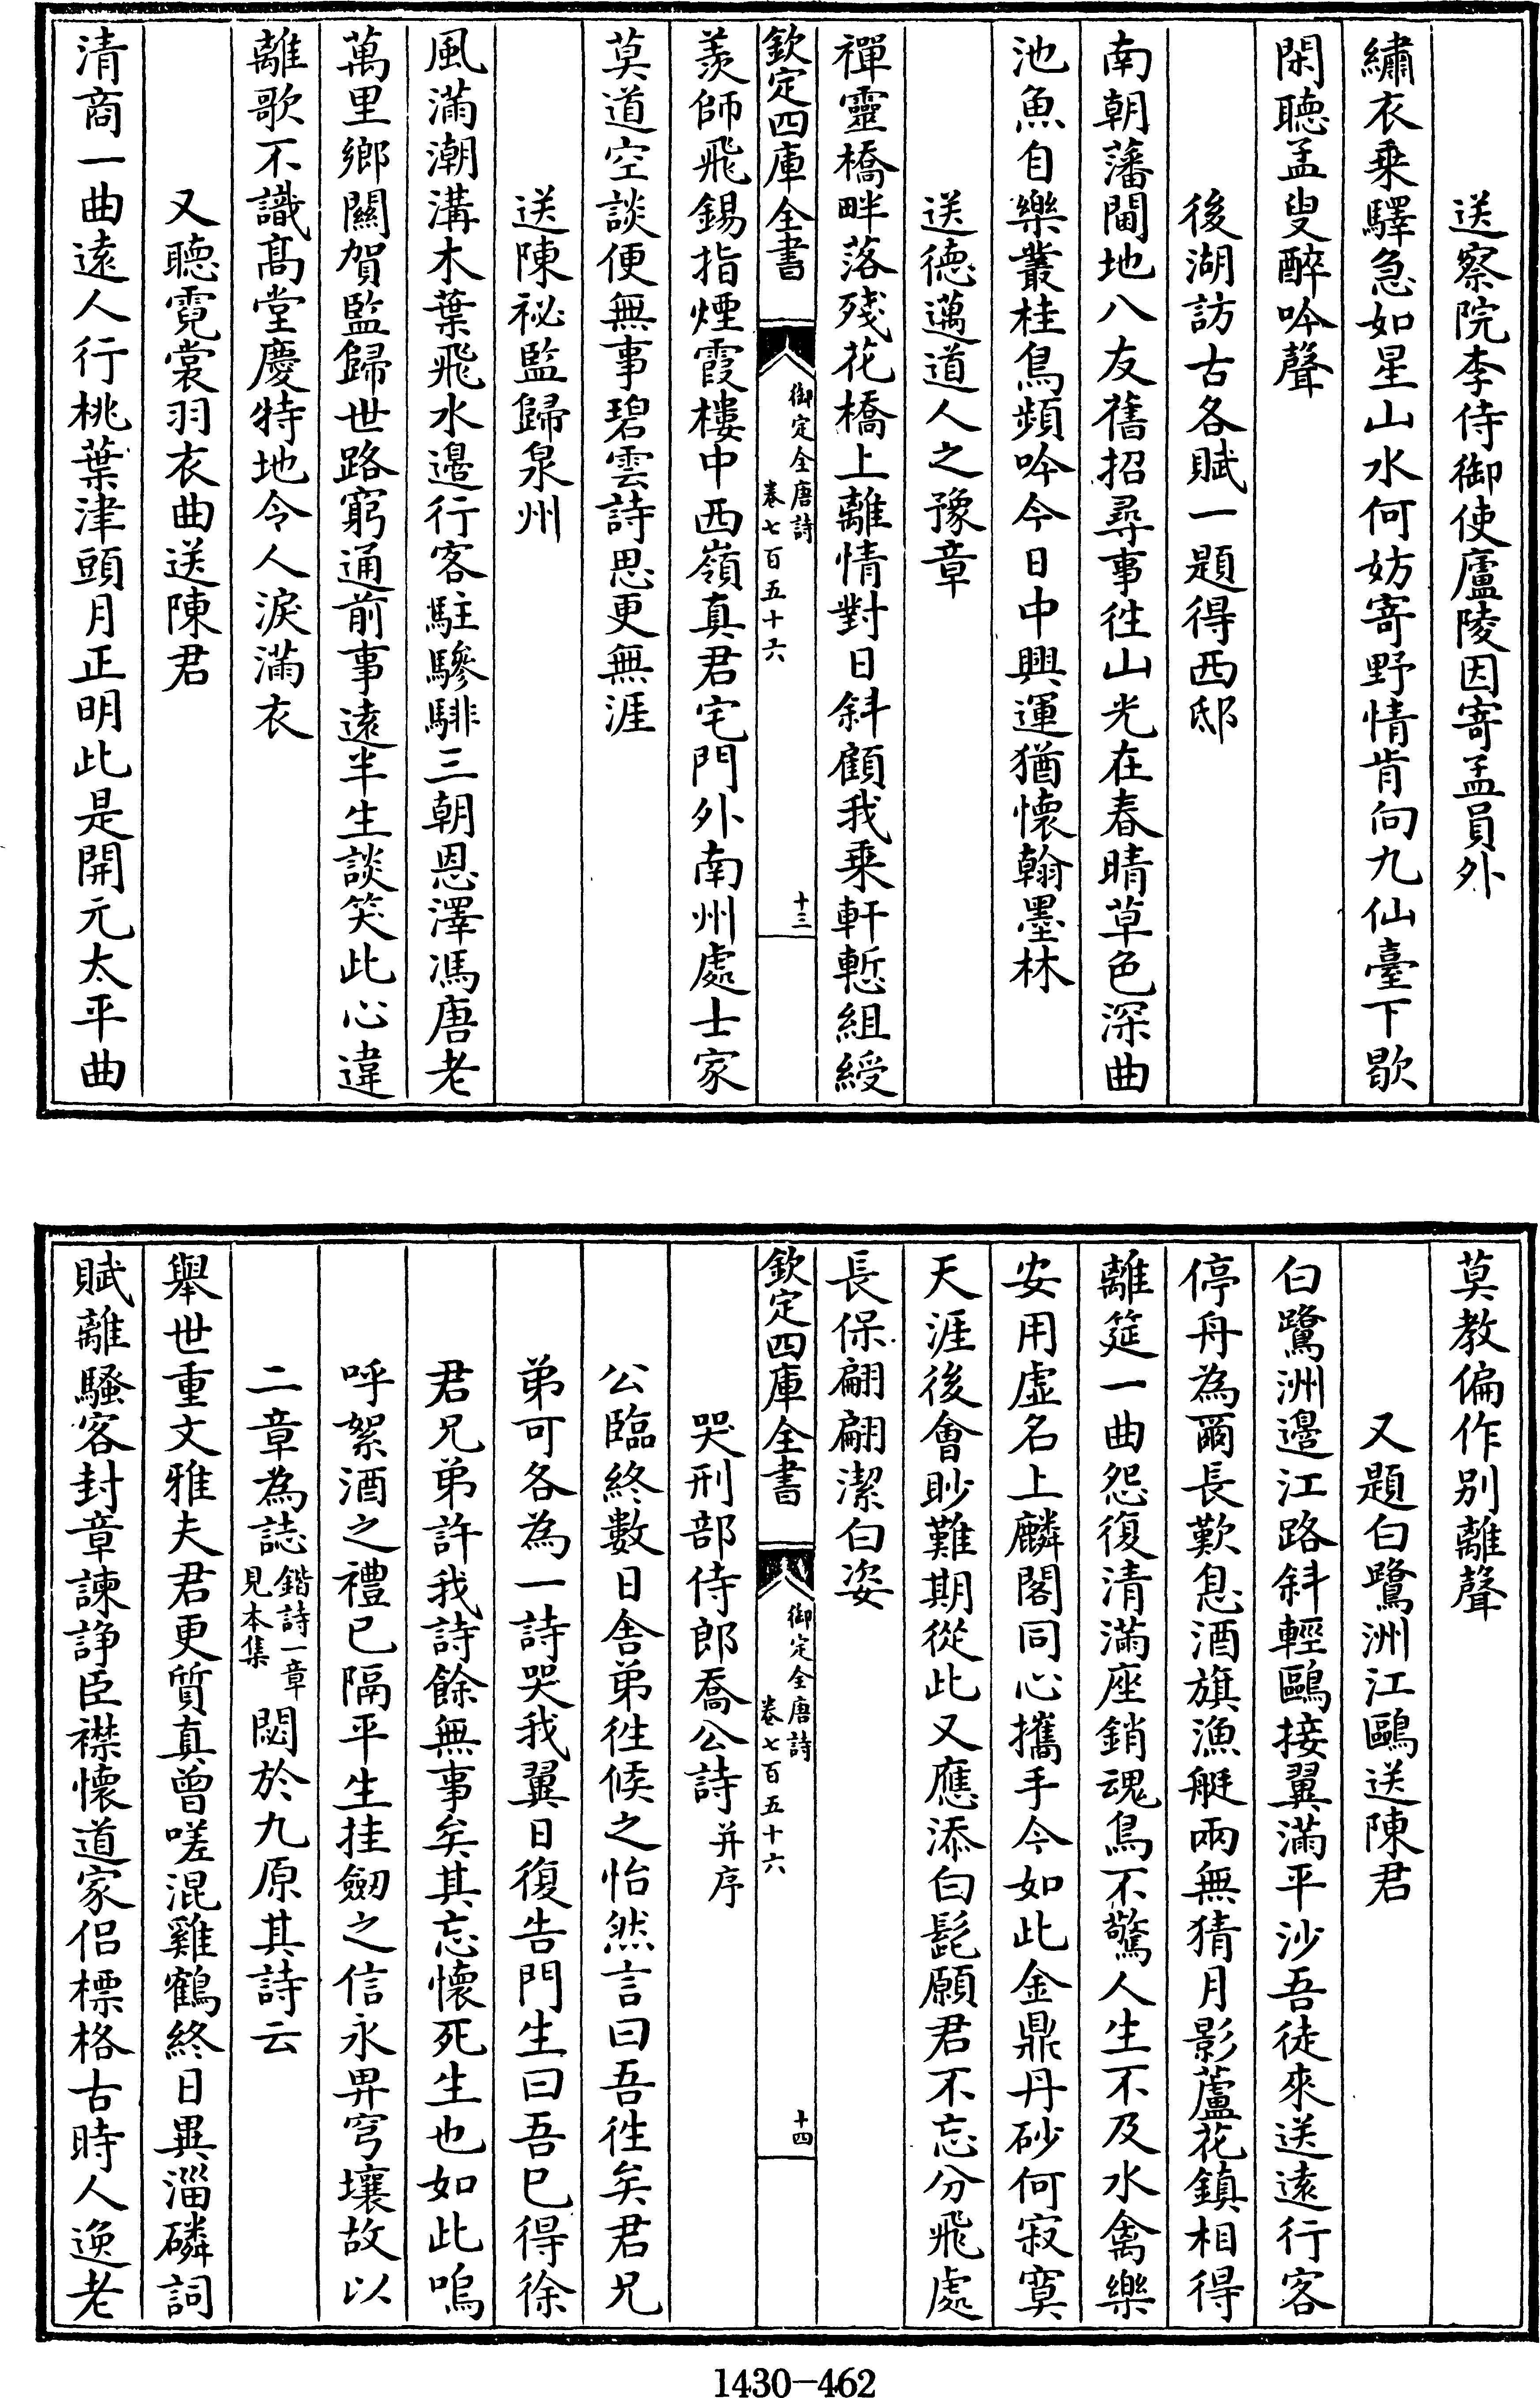 送察院李侍御使廬陵因寄孟員外
繡衣乗驛急如星山水何妨寄野情肯向九仙臺下歇
閑聽孟叟醉吟聲
後湖訪古各賦一題得西邸
南朝藩閫地八友舊招尋事徃山光在春晴草色深曲
池魚自樂叢桂鳥頻吟今日中興運猶懷翰墨林
送徳邁道人之豫章
禪靈橋畔落殘花橋上離情對日斜顧我乗軒慙組綬
欽定四庫全書
御定全唐詩
卷七百五十六
十三
羨師飛錫指煙霞樓中西嶺真君宅門外南州處士家
莫道空談便無事碧雲詩思更無涯
送陳祕監歸泉州
風滿潮溝木葉飛水邉行客駐驂騑三朝恩澤馮唐老
萬里鄉關賀監歸世路窮通前事逺半生談笑此心違
離歌不識髙堂慶特地令人淚滿衣
又聽霓裳羽衣曲送陳君
清商一曲逺人行桃葉津頭月正明此是開元太平曲
莫教偏作别離聲
又題白鷺洲江鷗送陳君
白鷺洲邉江路斜輕鷗接翼滿平沙吾徒來送逺行客
停舟為爾長歎息酒旗漁艇兩無猜月影蘆花鎮相得
離筵一曲怨復清滿座銷魂鳥不驚人生不及水禽樂
安用虚名上麟閣同心攜手今如此金鼎丹砂何寂寞
天涯後會眇難期從此又應添白髭願君不忘分飛處
長保翩翩潔白姿
欽定四庫全書
御定全唐詩
卷七百五十六
十四
哭刑部侍郎喬公詩并序
公臨終數日舎弟徃候之怡然言曰吾徃矣君兄
弟可各為一詩哭我翼日復告門生曰吾已得徐
君兄弟許我詩餘無事矣其忘懷死生也如此嗚
呼絮酒之禮已隔平生挂劒之信永畀穹壤故以
二章為誌鍇詩一章見本集閟於九原其詩云
舉世重文雅夫君更質真曾嗟混雞鶴終日異淄磷詞
賦離騷客封章諫諍臣襟懷道家侣標格古時人逸老
1430-462